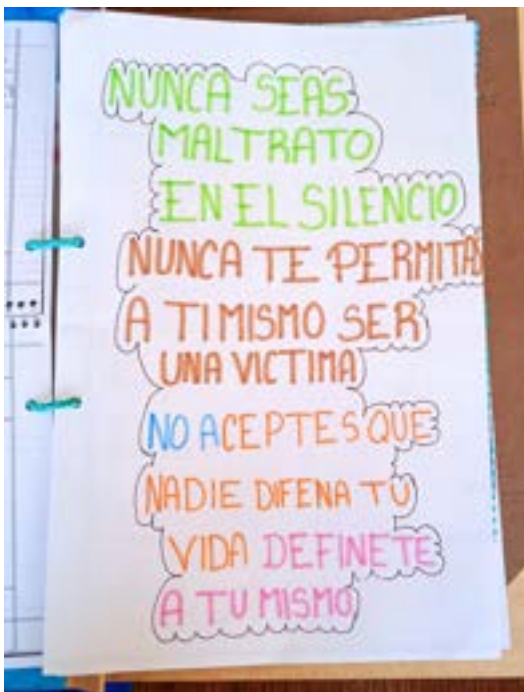 NUNCA SEAS
MALTRATO
EN EL SILENCIO
NUNCA TE PERMITAS
A TI MISMO SER
UNA VICTIMA
NO ACEPTES QUE
NADIE DIFENA TU
VIDA DEFINETE
A TU MISMO